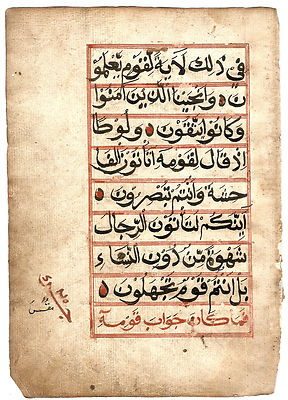 في ذلك لاية لقوم يعلمو
ن وانجينا الذين امنوا
وكانوا يتقون ولوطا
اذ قال لقومه اتاتون الفا
حشة وانتم تبصرون
اينكم لتاتون الرجال
شهوة من دون النساء
بل انتم قوم تجهلون
فما كان جواب قومه